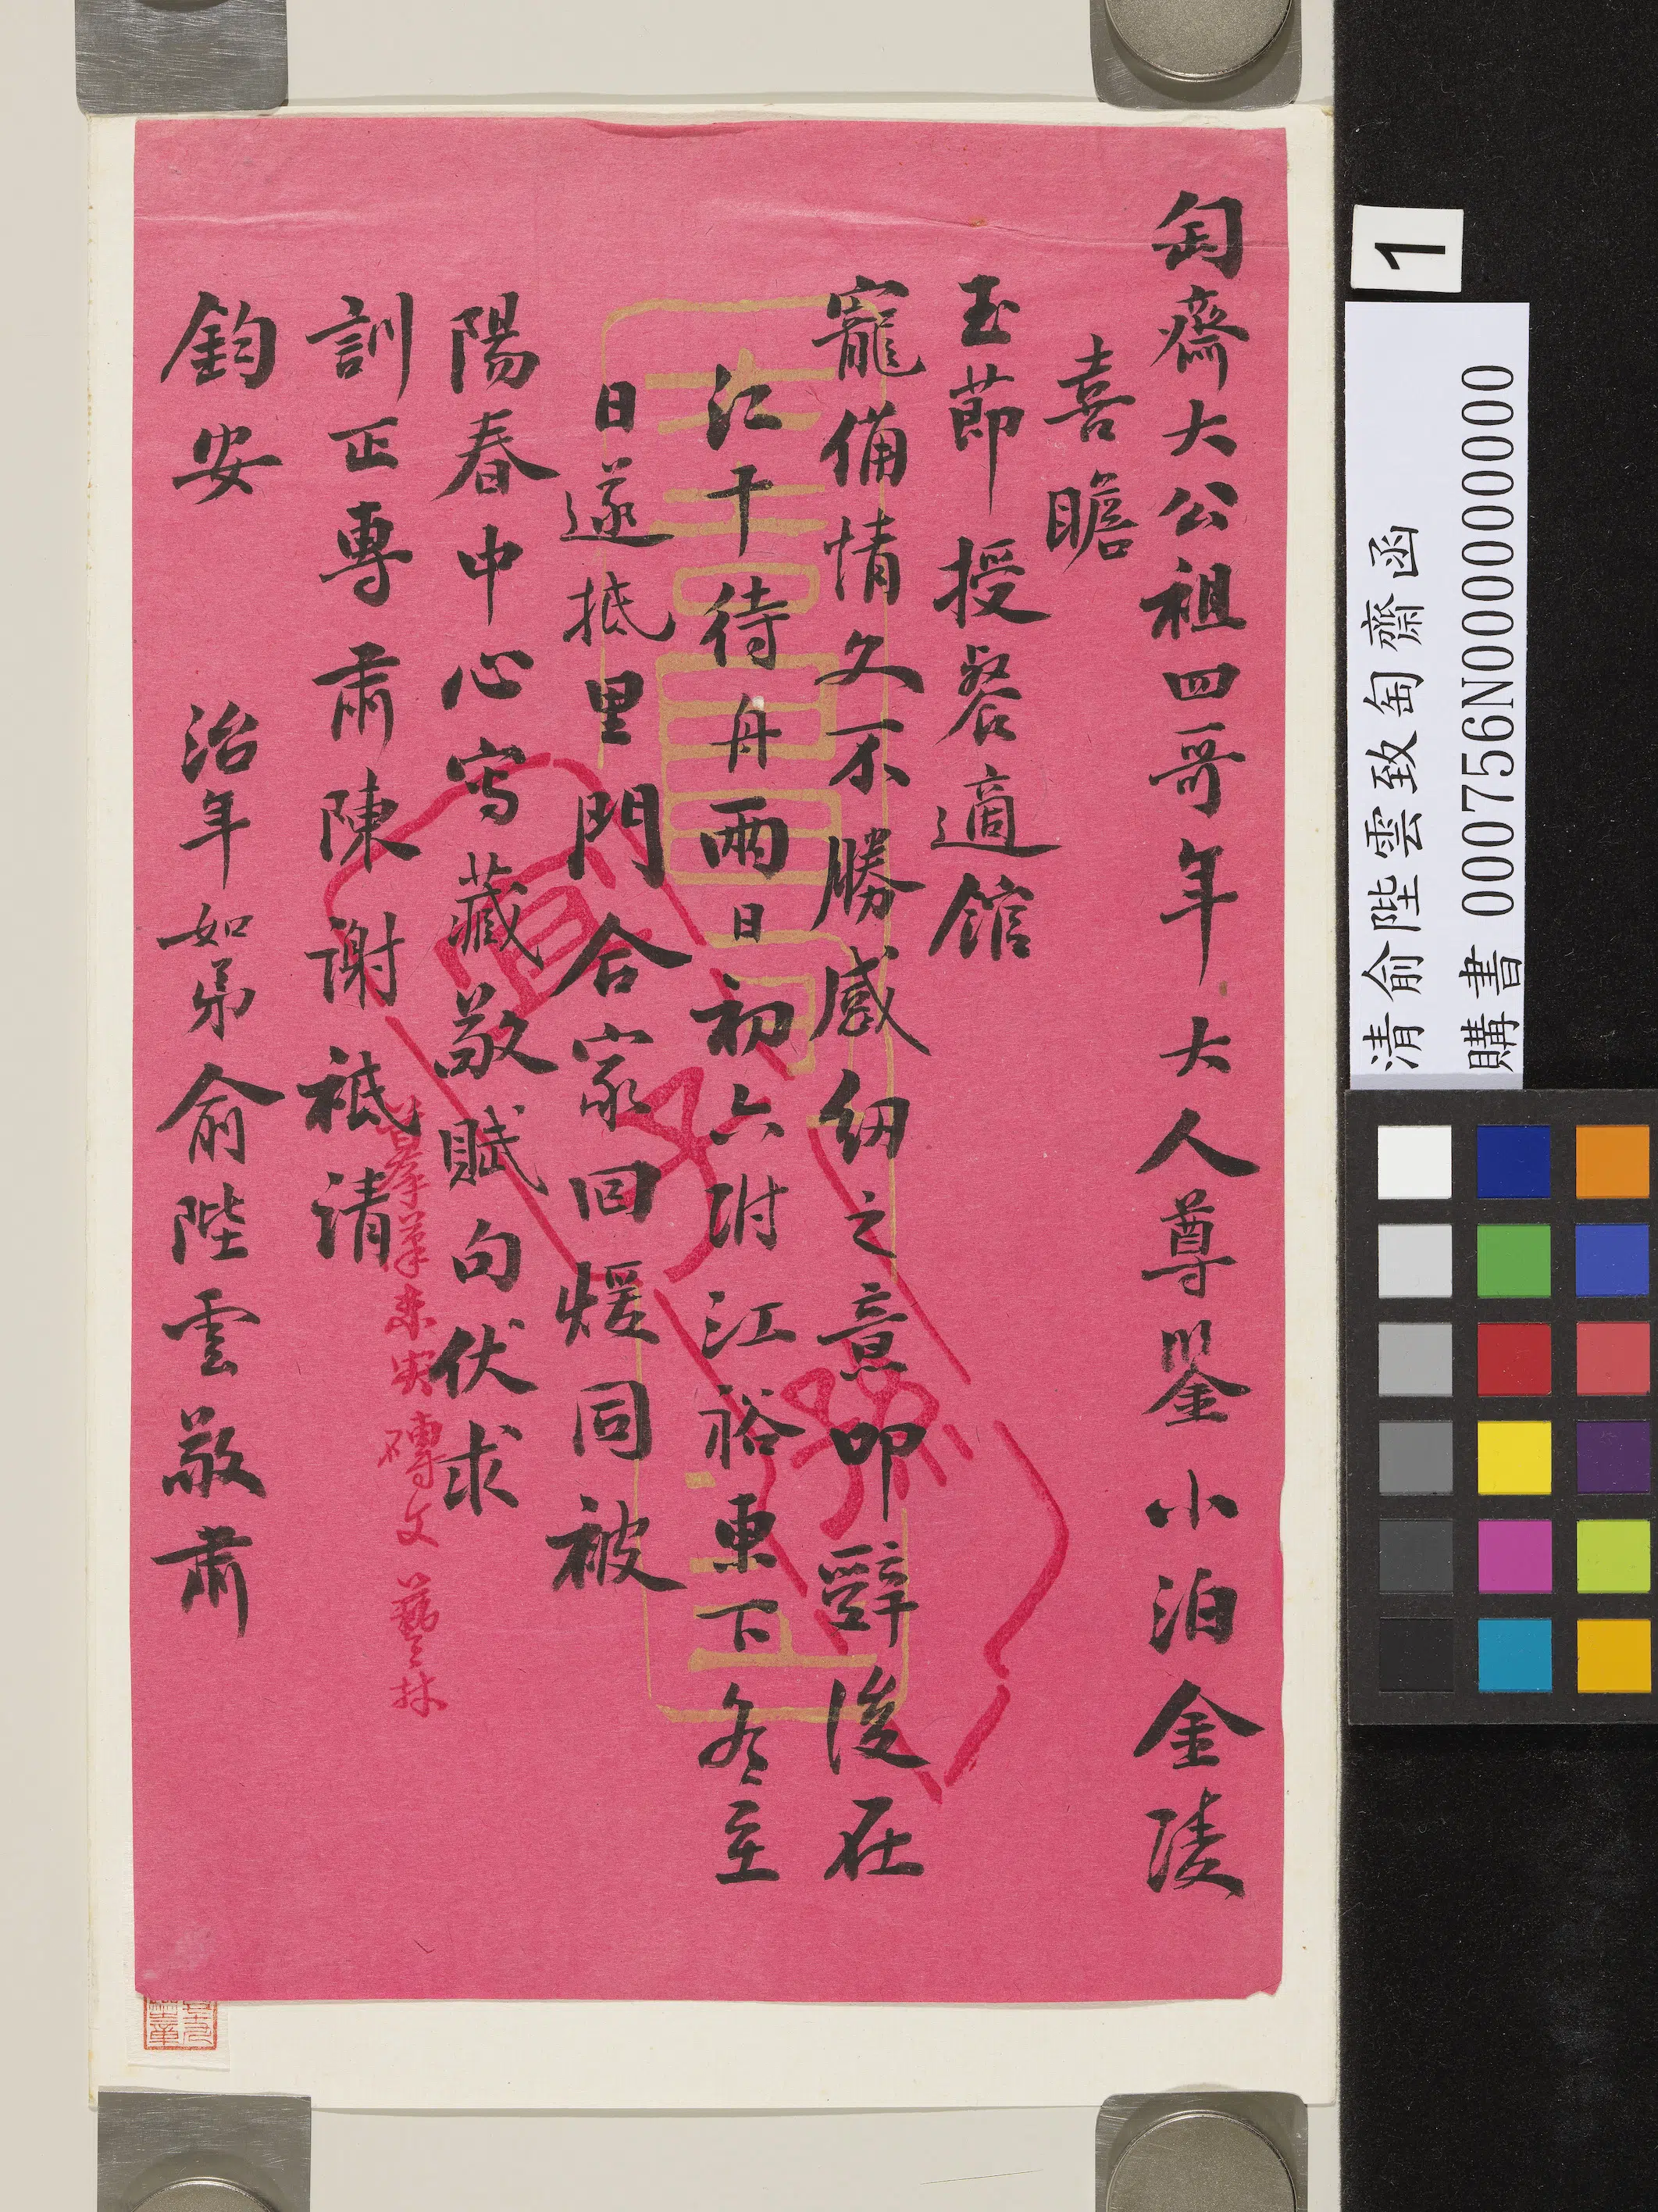 匋齋大公祖四哥年大人尊鑒小泊金陵
喜瞻
玉節授餐適館
寵備情文不勝感紉之意叩辭後在
江干待舟兩日初六附江裕東下冬至
日遂抵里門合家回煖同被
陽春中心寫藏敬賦句伏求
訓正專肅陳謝祗清
鈞安
治年如弟俞陛雲敬肅
磚文
藝林
1
清俞陛雲致匋齋函
購書 000756N000000000